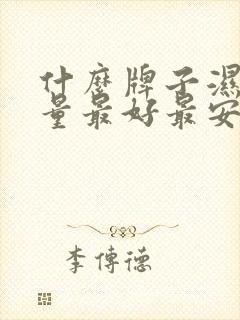 什麼牌子濕
量最好最安
李傳德